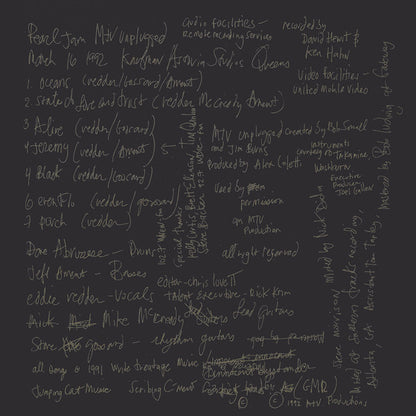 Pearl Jam MTV unplugged
March 16 1992 Kaufman Astoria Studios Queens
1. Oceans (vedder/Gossard/Ament)
2. state of love and trust (vedder McCready Ament)
3 Alive (vedder/Gossard)
4 Jeremy (vedder/Ament)
5 Black (vedder/Gossard)
6 evenflo (vedder/gossard)
7 porch (vedder)
Dave Abruzzese - Drums
Jeff Ament - Basses
eddie vedder - vocals
Mike McCready Lead Guitars
Stone gossard - rhythm guitars
all songs © 1991 write treatage music
Jumping Cat Music Scribing C-ment
audio facilities -
remote recording services
recorded by
David Hewitt &
Ken Hahn
Video facilities -
united Mobile Video
MTV unplugged created by
and Jim Burns
Produced by Alex Coletti
instruments
courtesy of Takamine
Washburn
Executive
Producer
Joel Gallen
Used by
permission
on MTV
Production
all right reserved
editor - chris love
talent executive - Rick Krim
special thanks
Mixed by Nick
Mixed at southern tracks recording
Atlanta, GA Assistant
mastered by Bob Ludwig at Gateway
GMR)
© © 1992 MTV Productions